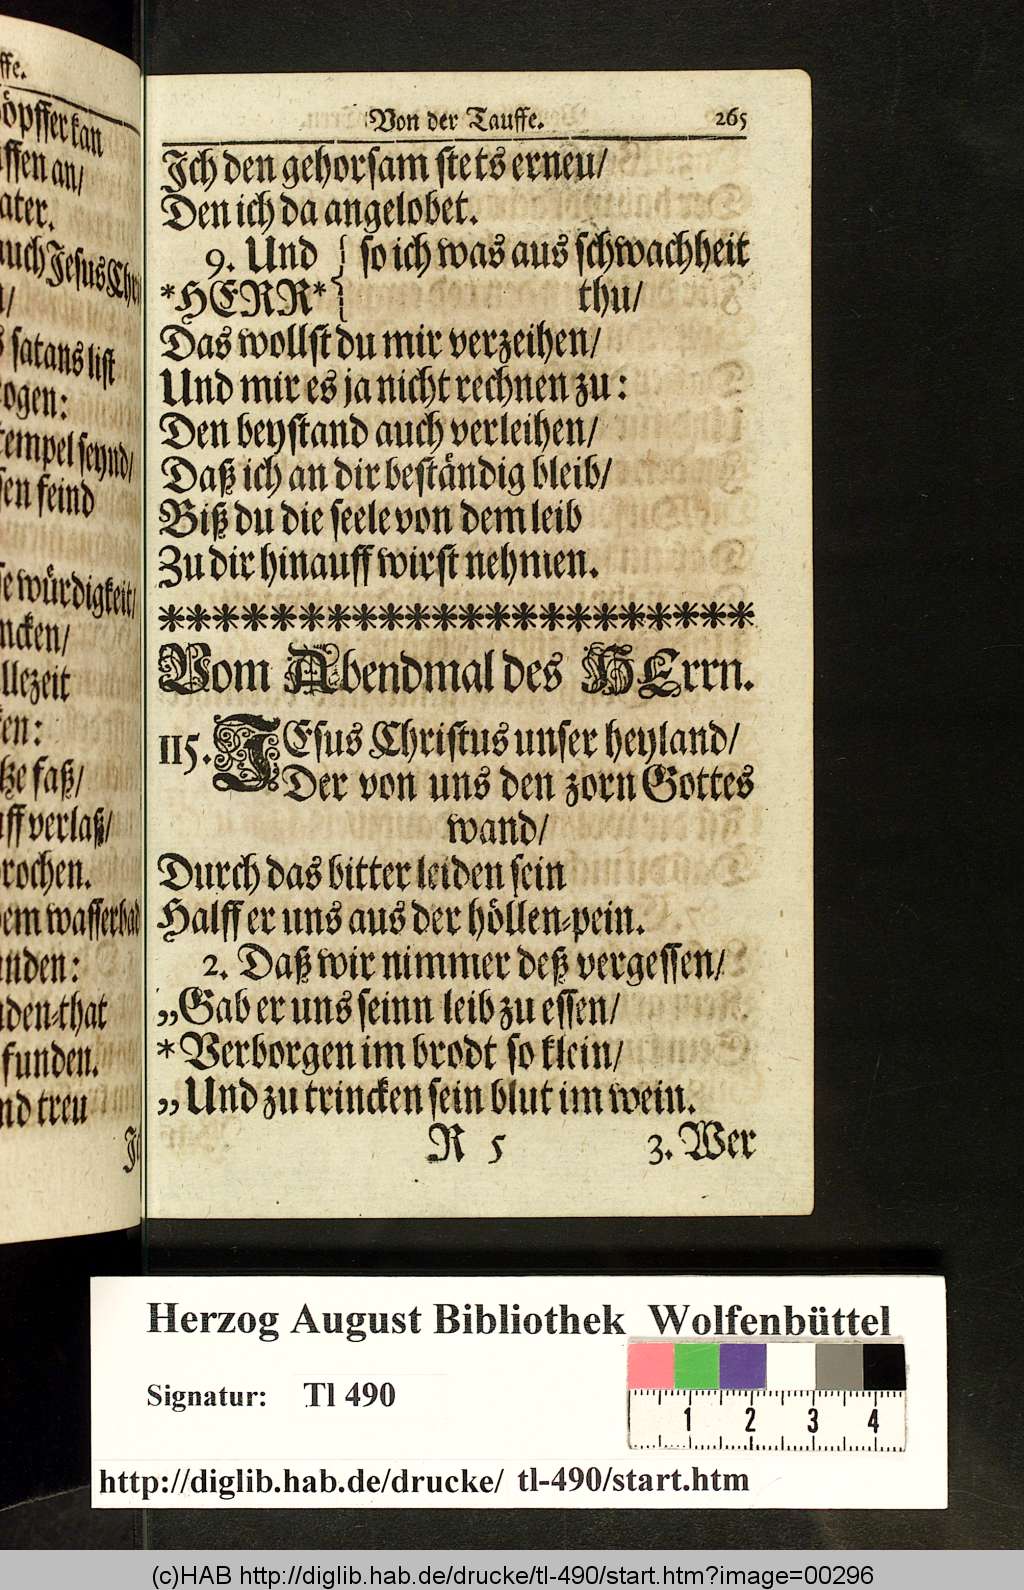 ffe.
öpffer kan
ffen an/
ater.
auch Jesus Chri
n/
s satans list
ogen:
tempel seynd/
sen feind
se würdigkeit/
ncken/
llezeit
ken:
tze faß/
uff verlaß/
rochen.
dem wasserbad
unden:
nden-that
funden.
nd treu
J
Von der Tauffe. 265
Jch den gehorsam stets erneu/
Den ich da angelobet.
9. Und } so ich was aus schwachheit
*HERR* } thu/
Das wollst du mir verzeihen/
Und mir es ja nicht rechnen zu:
Den beystand auch verleihen/
Daß ich an dir beständig bleib/
Biß du die seele von dem leib
Zu dir hinauff wirst nehmen.
**********************
Vom Abendmal des HErrn.
115. JEsus Christus unser heyland/
Der von uns den zorn Gottes
wand/
Durch das bitter leiden sein
Halff er uns aus der höllen-pein.
2. Daß wir nimmer deß vergessen/
„Gab er uns seinn leib zu essen/
* Verborgen im brodt so klein/
„Und zu trincken sein blut im wein.
R 5 3. Wer
Herzog August Bibliothek Wolfenbüttel
Signatur: Tl 490
1 2 3 4
http://diglib.hab.de/drucke/ tl-490/start.htm
(c)HAB http://diglib.hab.de/drucke/tl-490/start.htm?image=00296